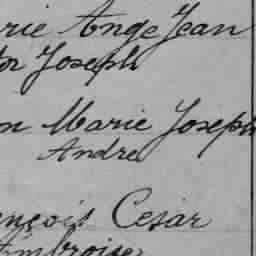 rie Ange Jean
or Joseph
n Marie Joseph
Andre
ençois Cesar
Ambroise